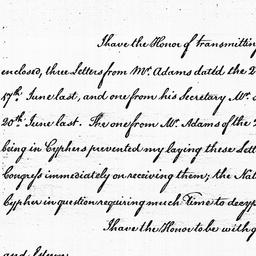 I have the Honor of transmitting
enclosed, three Letters from Mr. Adams dated the 2
17th. June last, and one from his Secretary Mr.
20th. June last. The one from Mr. Adams of the
being in Cyphers prevented my laying these Lett
Congress immediately on receiving them; the Nat
Cypher in question requiring much Time to decyp
I have the Honor to be with g
and Esteem